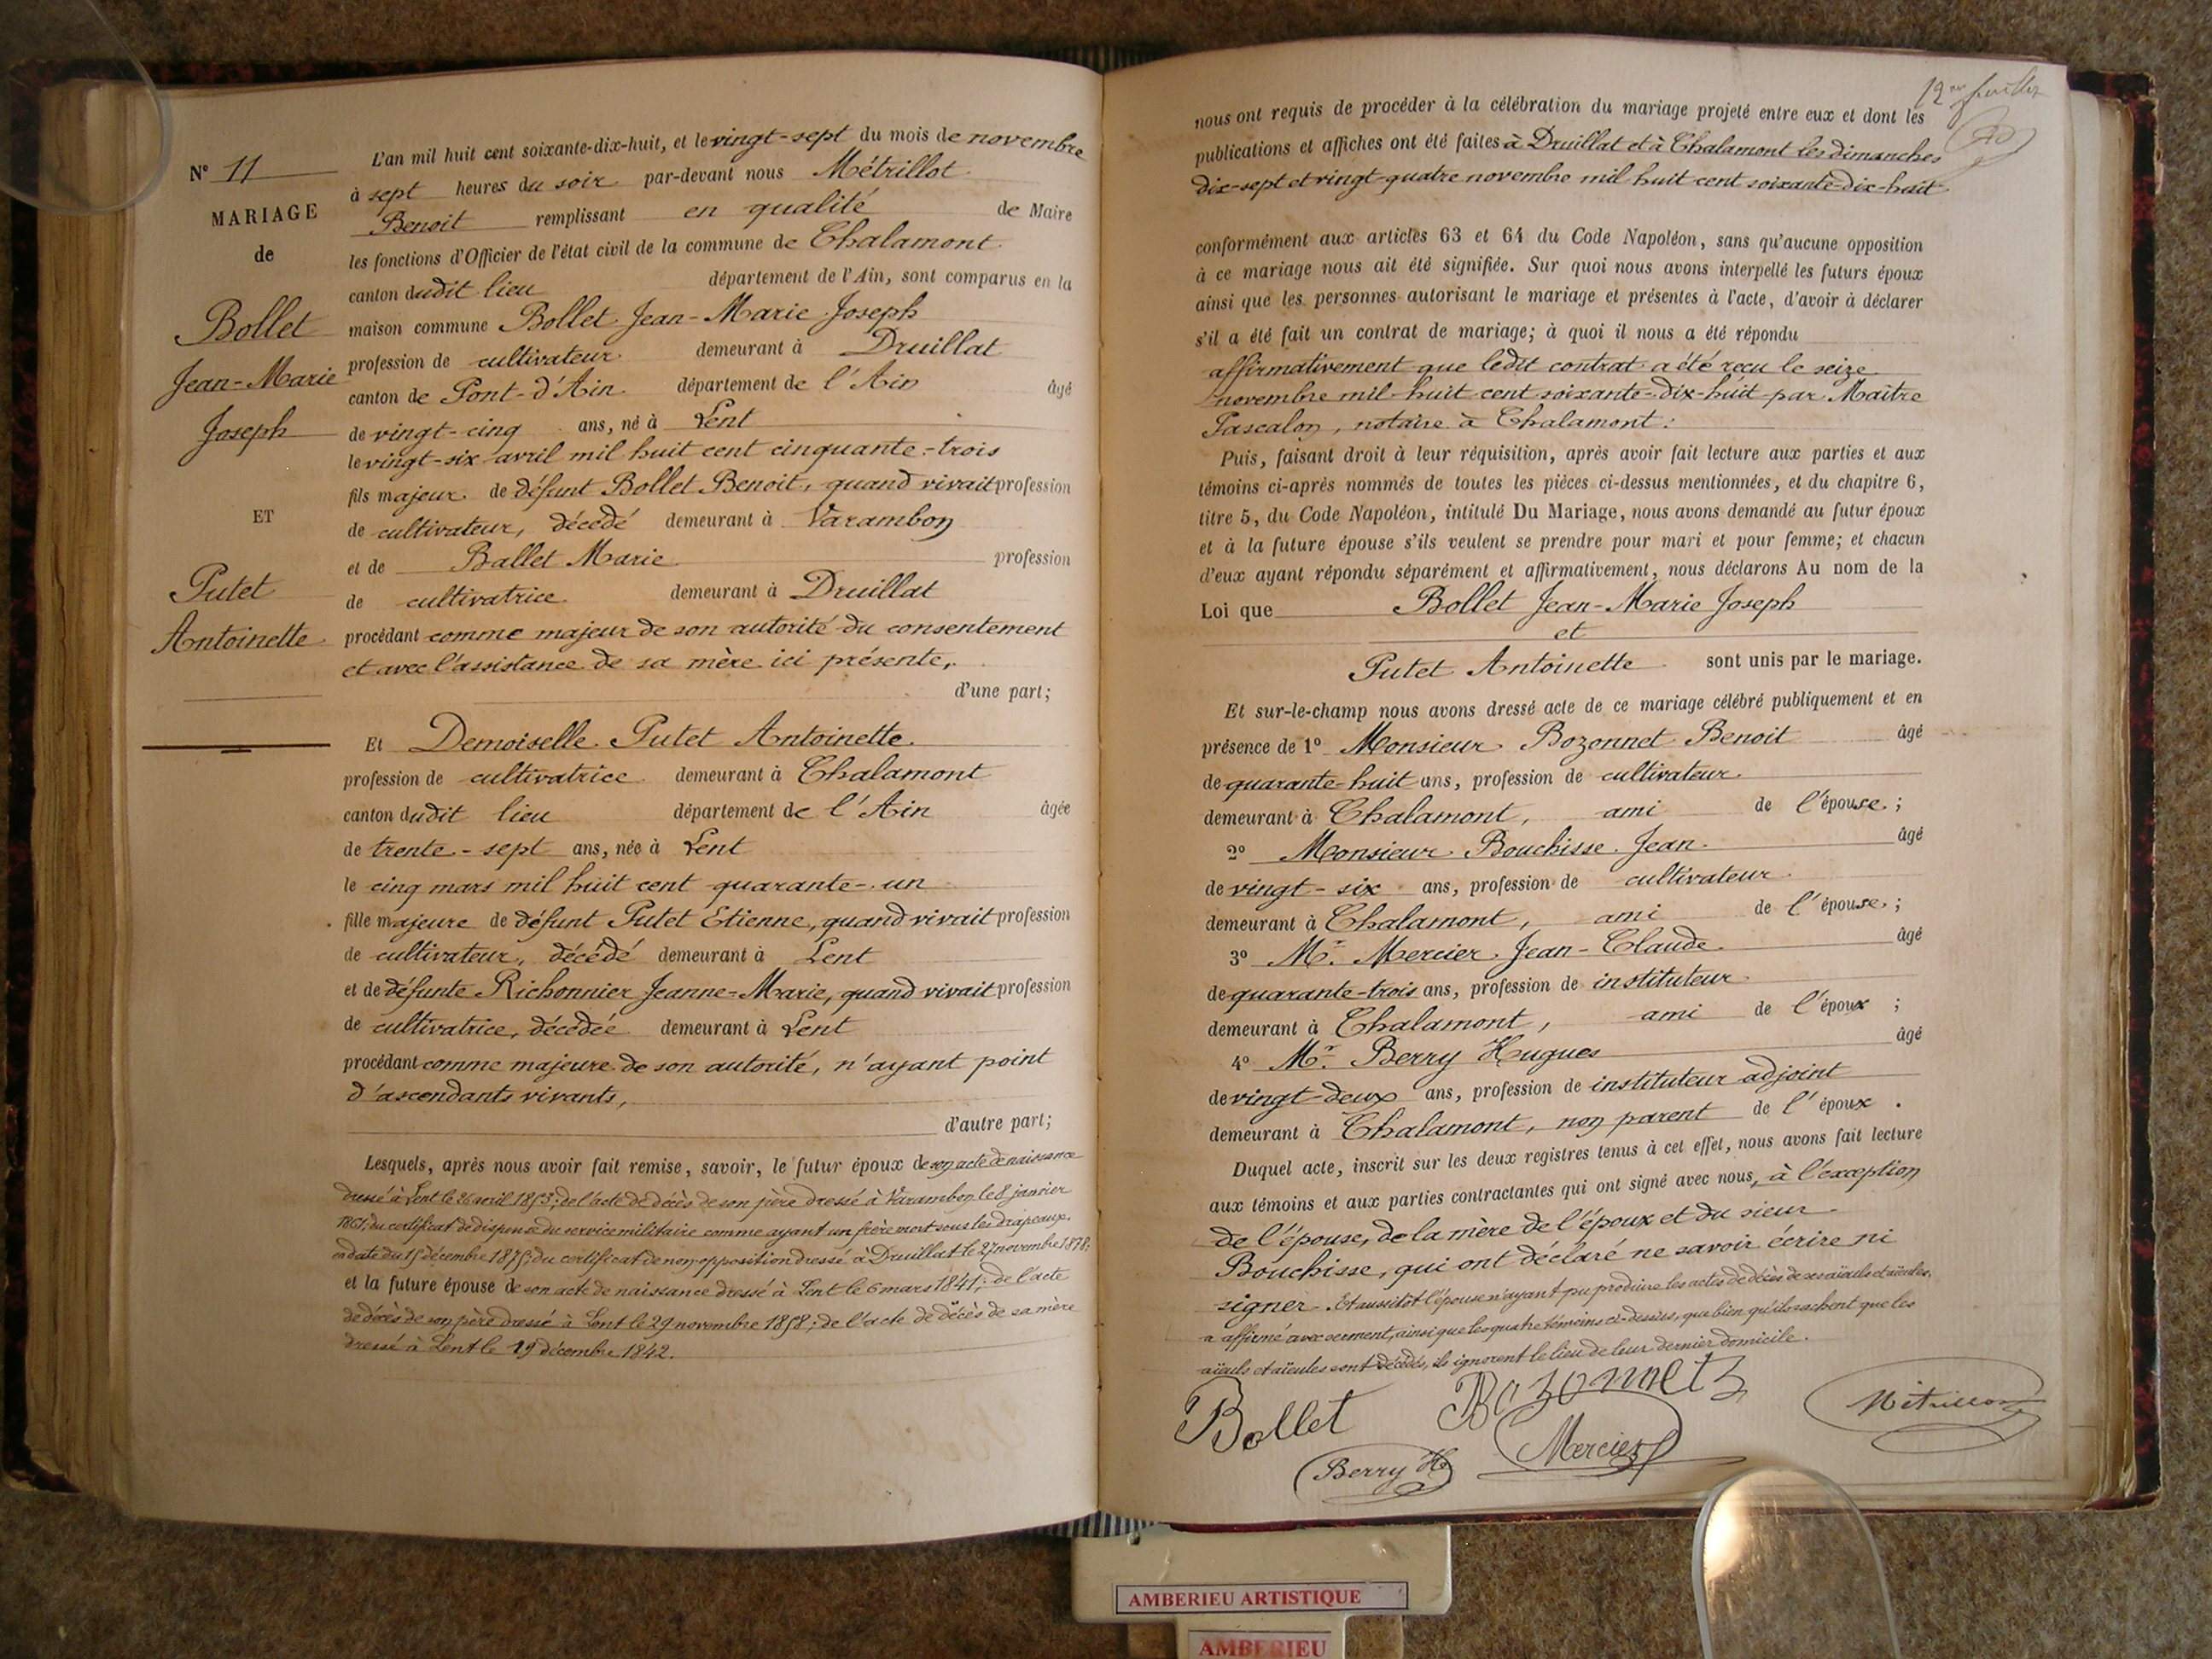 N° 11
MARIAGE
de
Bollet
Jean-Marie
Joseph
ET
Putet
Antoinette
L'an mil huit cent soixante-dix-huit, et le vingt-sept du mois de novembre
à sept heures du soir par-devant nous Métrillot
Benoit remplissant en qualité de Maire
les fonctions d'Officier de l'état civil de la commune de Chalamont
canton dudit lieu département de l'Ain, sont comparus en la
maison commune Bollet Jean-Marie Joseph
profession de cultivateur demeurant à Druillat
canton de Pont-d'Ain département de l'Ain âgé
de vingt-cinq ans, né à Lent
le vingt-six avril mil huit cent cinquante-trois
fils majeur de défunt Bollet Benoit, quand vivait profession
de cultivateur, décédé demeurant à Varambon
et de Ballet Marie profession
de cultivatrice demeurant à Druillat
procédant comme majeur de son autorité du consentement
et avec l'assistance de sa mère ici présente,
d'une part;
Et Demoiselle Putet Antoinette
profession de cultivatrice demeurant à Chalamont
canton dudit lieu département de l'Ain âgée
de trente-sept ans, née à Lent
le cinq mars mil huit cent quarante-un
fille majeure de défunt Putet Etienne, quand vivait profession
de cultivateur, décédé demeurant à Lent
et de défunte Richonnier Jeanne-Marie, quand vivait profession
de cultivatrice, décédée demeurant à Lent
procédant comme majeure de son autorité, n'ayant point
d'ascendants vivants,
d'autre part;
Lesquels, après nous avoir fait remise, savoir, le futur époux de son acte de naissance
dressé à Lent le 26 avril 1853; de l'acte de décès de son père dressé à Varambon le 8 janvier
1861; du certificat de dispense du service militaire comme ayant un frère mort sous les drapeaux,
en date du 15 décembre 1875; du certificat de non opposition dressé à Druillat le 27 novembre 1878;
et la future épouse de son acte de naissance dressé à Lent le 6 mars 1841; de l'acte
de décès de son père dressé à Lent le 29 novembre 1858; de l'acte de décès de sa mère
dressé à Lent le 19 décembre 1842.
12me feuillet
nous ont requis de procéder à la célébration du mariage projeté entre eux et dont les
publications et affiches ont été faites à Druillat et à Chalamont les dimanches
dix-sept et vingt-quatre novembre mil huit cent soixante-dix-huit
conformément aux articles 63 et 64 du Code Napoléon, sans qu'aucune opposition
à ce mariage nous ait été signifiée. Sur quoi nous avons interpellé les futurs époux
ainsi que les personnes autorisant le mariage et présentes à l'acte, d'avoir à déclarer
s'il a été fait un contrat de mariage; à quoi il nous a été répondu
affirmativement que ledit contrat a été reçu le seize
novembre mil-huit cent soixante-dix-huit par Maître
Pascalon, notaire à Chalamont.
Puis, faisant droit à leur réquisition, après avoir fait lecture aux parties et aux
témoins ci-après nommés de toutes les pièces ci-dessus mentionnées, et du chapitre 6,
titre 5, du Code Napoléon, intitulé Du Mariage, nous avons demandé au futur époux
et à la future épouse s'ils veulent se prendre pour mari et pour femme; et chacun
d'eux ayant répondu séparément et affirmativement, nous déclarons Au nom de la
Loi que Bollet Jean-Marie Joseph
et
Putet Antoinette sont unis par le mariage.
Et sur-le-champ nous avons dressé acte de ce mariage célébré publiquement et en
présence de 1° Monsieur Bozonnet Benoit âgé
de quarante-huit ans, profession de cultivateur
demeurant à Chalamont, ami de l'épouse;
2° Monsieur Bouchisse Jean âgé
de vingt-six ans, profession de cultivateur
demeurant à Chalamont, ami de l'épouse;
3° Mr Mercier Jean-Claude âgé
de quarante-trois ans, profession de instituteur
demeurant à Chalamont, ami de l'époux;
4° Mr Berry Hugues âgé
de vingt-deux ans, profession de instituteur adjoint
demeurant à Chalamont, non parent de l'époux.
Duquel acte, inscrit sur les deux registres tenus à cet effet, nous avons fait lecture
aux témoins et aux parties contractantes qui ont signé avec nous, à l'exception
de l'épouse, de la mère de l'époux et du sieur
Bouchisse, qui ont déclaré ne savoir écrire ni
signer. Et aussitôt l'épouse n'ayant pu produire les actes de décès de ses aïeuls et aïeules,
a affirmé avec serment, ainsi que les quatre témoins ci-dessus, que bien qu'ils sachent que les
aïeuls et aïeules sont décédés, ils ignorent le lieu de leur dernier domicile.
Bollet Bozonnet Métrillot
Berry H. Mercier
AMBERIEU ARTISTIQUE
AMBERIEU